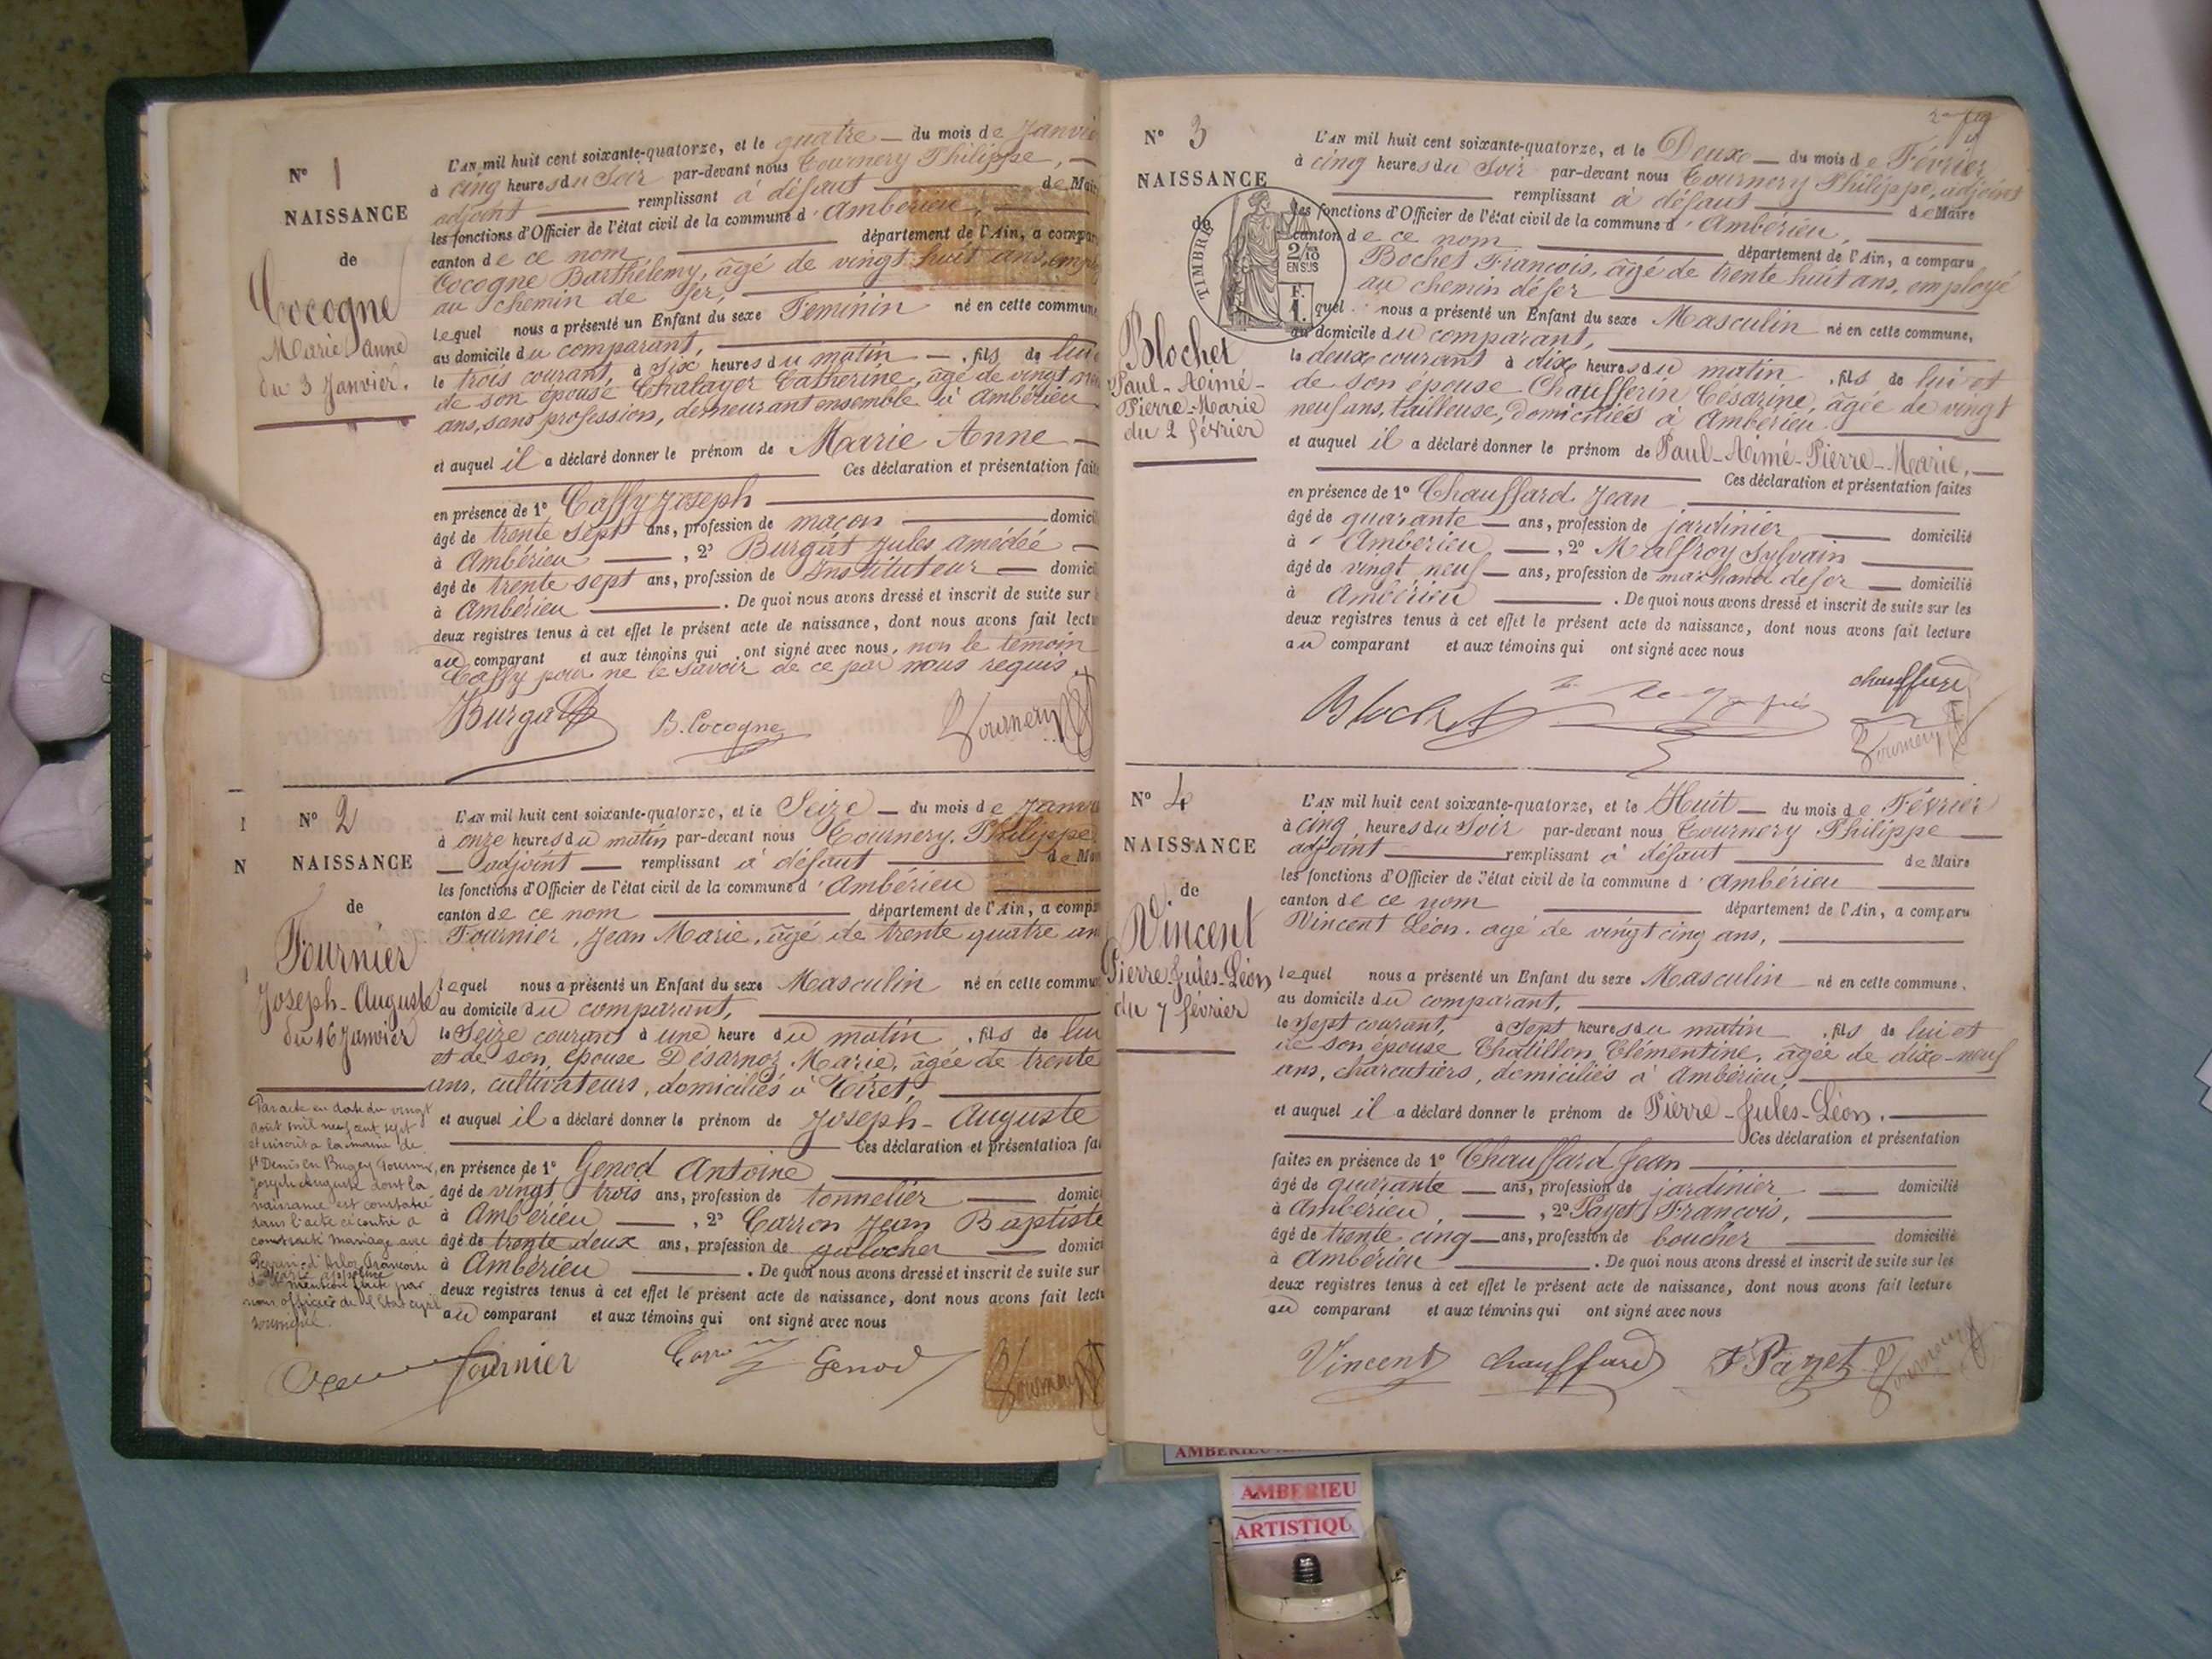 N° 1
NAISSANCE
de
Cocogne
Marie Anne
du 3 Janvier.
L'AN mil huit cent soixante-quatorze, et le quatre — du mois de Janvie
à cinq heures du Soir par-devant nous Tournery Philippe, —
adjoint — remplissant à défaut — de Mair
les fonctions d'Officier de l'état civil de la commune d'Ambérieu, —
canton de ce nom — département de l'Ain, a compar
Cocogne Barthélemy, âgé de vingt huit ans, empl
au chemin de fer, —
lequel nous a présenté un Enfant du sexe Féminin né en cette commune
au domicile du comparant, —
le trois courant, à Six heures du matin — , fils de lui
de son épouse Chalayer Catherine, âgé de vingt
ans, sans profession, demeurant ensemble à Ambérieu
et auquel il a déclaré donner le prénom de Marie Anne —
Ces déclaration et présentation faite
en présence de 1° Caffy Joseph
âgé de trente sept ans, profession de maçon — domici
à Ambérieu — , 2° Burgat Jules Amédée —
âgé de trente sept ans, profession de Instituteur — domici
à Ambérieu — . De quoi nous avons dressé et inscrit de suite sur
deux registres tenus à cet effet le présent acte de naissance, dont nous avons fait lectu
au comparant et aux témoins qui ont signé avec nous, non le témoin
Caffy pour ne le savoir de ce par nous requis.
Burgat B. Cocogne Tournery
N° 2
NAISSANCE
de
Fournier
Joseph-Auguste
du 16 Janvier
L'AN mil huit cent soixante-quatorze, et le Seize — du mois de Janvi
à onze heures du matin par-devant nous Tournery Philippe
— adjoint — remplissant à défaut — de Ma
les fonctions d'Officier de l'état civil de la commune d'Ambérieu —
canton de ce nom — département de l'Ain, a compa
Fournier, Jean Marie, âgé de trente quatre an
lequel nous a présenté un Enfant du sexe Masculin né en cette commu
au domicile du comparant, —
le Seize courant à une heure du matin , fils de lui
et de son épouse Désarnoz Marie, âgée de trente
ans, cultivateurs, domiciliés à Tiret, —
et auquel il a déclaré donner le prénom de Joseph-Auguste
Ces déclaration et présentation fai
en présence de 1° Genod Antoine —
âgé de vingt trois ans, profession de tonnelier — domici
à Ambérieu — , 2° Carron Jean Baptiste
âgé de trente deux ans, profession de galocher — domici
à Ambérieu — . De quoi nous avons dressé et inscrit de suite sur
deux registres tenus à cet effet le présent acte de naissance, dont nous avons fait lectu
au comparant et aux témoins qui ont signé avec nous
Par acte en date du vingt
août mil neuf cent sept
et inscrit à la mairie de
St Denis en Bugey Fournier,
Joseph Auguste dont la
naissance est constatée
dans l'acte ci contre a
contracté mariage avec
Perrin d'Arloz Françoise
mention faite par
nous officier de l'Etat civil
soussigné.
Fournier Genod Tournery
N° 3
NAISSANCE
de
TIMBRE
2/10
EN SUS
F.
1.
Blochet
Paul-Aimé-
Pierre-Marie
du 2 février
L'AN mil huit cent soixante-quatorze, et le Deux — du mois de Février
à cinq heures du Soir par-devant nous Tournery Philippe, adjoint
— remplissant à défaut — de Maire
les fonctions d'Officier de l'état civil de la commune d'Ambérieu, —
canton de ce nom — département de l'Ain, a comparu
Bochet François, âgé de trente huit ans, employé
au chemin de fer —
quel nous a présenté un Enfant du sexe Masculin né en cette commune,
au domicile du comparant, —
le deux courant à dix heures du matin , fils de lui et
de son épouse Chaufferin Césarine, âgée de vingt
neuf ans, tailleuse, domiciliés à Ambérieu. —
et auquel il a déclaré donner le prénom de Paul-Aimé-Pierre-Marie, —
Ces déclaration et présentation faites
en présence de 1° Chauffard Jean —
âgé de quarante — ans, profession de jardinier — domicilié
à Ambérieu — , 2° Malfroy Sylvain —
âgé de vingt neuf — ans, profession de marchand de fer — domicilié
à Ambérieu — . De quoi nous avons dressé et inscrit de suite sur les
deux registres tenus à cet effet le présent acte de naissance, dont nous avons fait lecture
au comparant et aux témoins qui ont signé avec nous
Blochet chauffard Tournery
N° 4
NAISSANCE
de
Vincent
Pierre-Jules-Léon
du 7 février
L'AN mil huit cent soixante-quatorze, et le Huit — du mois de Février
à cinq heures du Soir par-devant nous Tournery Philippe —
adjoint — remplissant à défaut — de Maire
les fonctions d'Officier de l'état civil de la commune d'Ambérieu —
canton de ce nom — département de l'Ain, a comparu
Vincent Léon, âgé de vingt cinq ans, —
lequel nous a présenté un Enfant du sexe Masculin né en cette commune,
au domicile du comparant, —
le Sept courant, à Sept heures du matin , fils de lui et
de son épouse Chatillon Clémentine, âgée de dix-neuf
ans, charcutiers, domiciliés à Ambérieu, —
et auquel il a déclaré donner le prénom de Pierre-Jules-Léon. —
Ces déclaration et présentation
faites en présence de 1° Chauffard Jean —
âgé de quarante — ans, profession de jardinier — domicilié
à Ambérieu, — , 2° Payet François, —
âgé de trente cinq — ans, profession de boucher — domicilié
à Ambérieu — . De quoi nous avons dressé et inscrit de suite sur les
deux registres tenus à cet effet le présent acte de naissance, dont nous avons fait lecture
au comparant et aux témoins qui ont signé avec nous
Vincent chauffard F Payet Tournery
AMBERIEU
AMBERIEU
ARTISTIQU